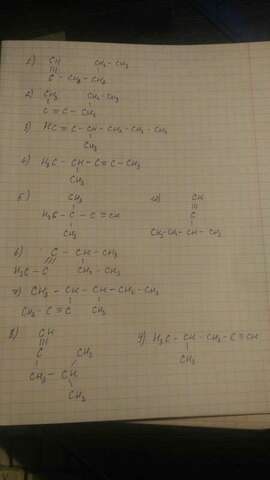 1) CH CH₂-CH₃
≡
C - CH₂-CH₂
2) CH₃ CH₂-CH₃
C ≡ C - CH₂
3) HC ≡ C - CH - CH₂ - CH₂ - CH₃
CH₃
4) H₃C - CH - C ≡ C - CH₃
CH₃
5) CH₃ CH
H₃C - C - C ≡ CH C
CH₃ CH₃-CH₂-CH-CH₃
6) C - CH - CH₃
H₃C - C CH₂ - CH₃
7) CH₃ - CH - CH - CH₂ - CH₃
CH₃ - C ≡ C CH₃
8) CH 9) H₃C - CH - CH₂ - C ≡ CH
≡ CH₃
C CH₃
CH₂ - CH
CH₃